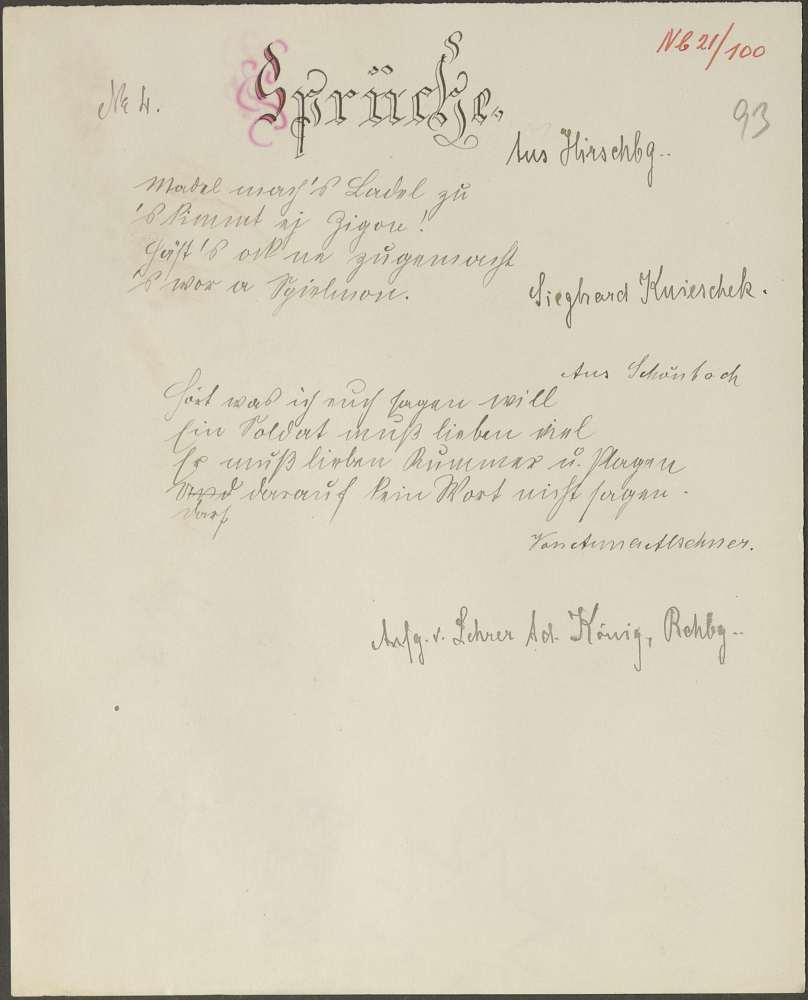 NB 21/100
No 4.
Sprüche.
93
Aus Hirschbg..
Madel mach's Ladel zu
's kimmt ej Zigon!
Häst's ock ne zugemacht
's wor a Spielmon.
Sieghard Knieschek.
Aus Schönbach
Hört was ich euch sagen will
Ein Soldat muß lieben viel
Er muß lieben Kummer u. Plagen
Und darauf kein Wort nicht sagen.
darf
Von Anna Altschner.
Aufg. v. Lehrer Ad. König, Rehbg..